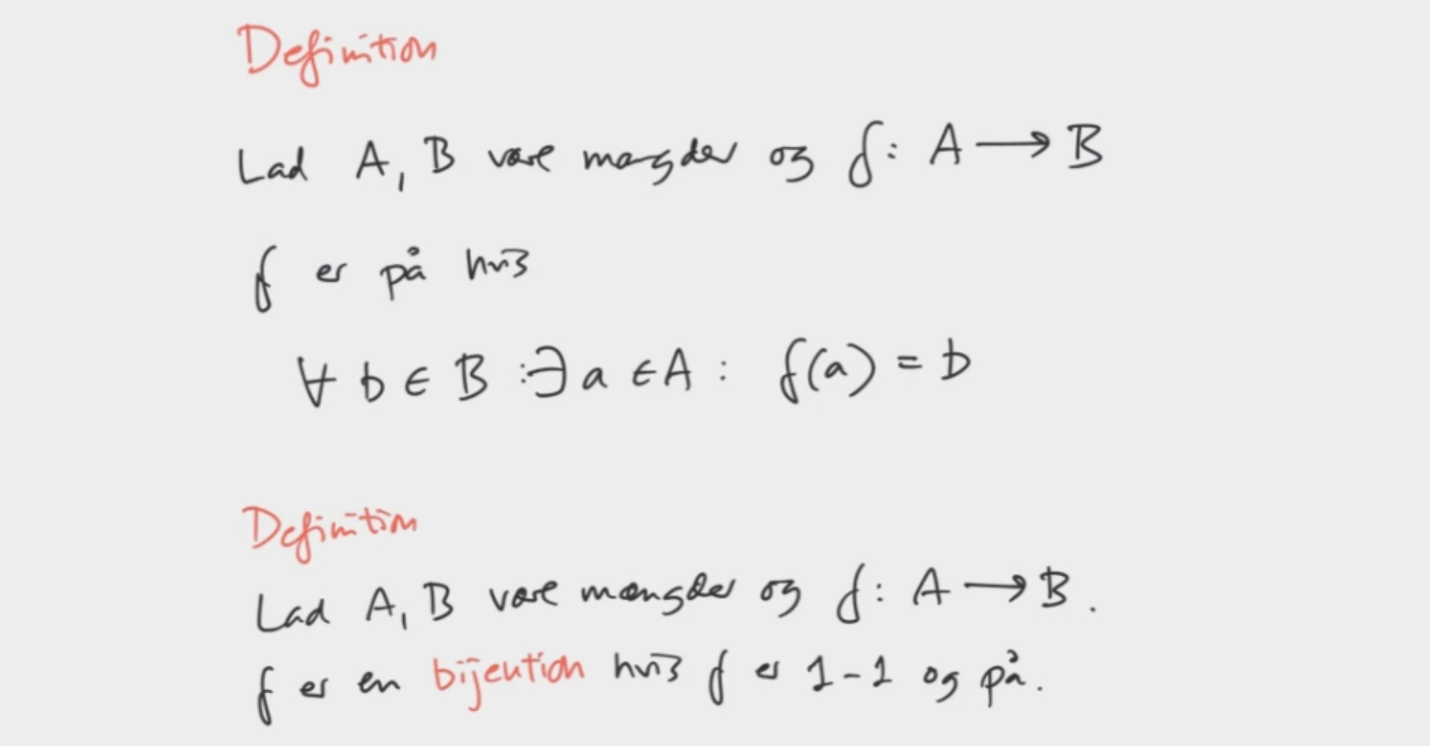 Definition
Lad A, B være mængder og f: A → B
f er på hvis
∀ b ∈ B : ∃ a ∈ A : f(a) = b
Definition
Lad A, B være mængder og f: A → B.
f er en bijektion hvis f er 1-1 og på.